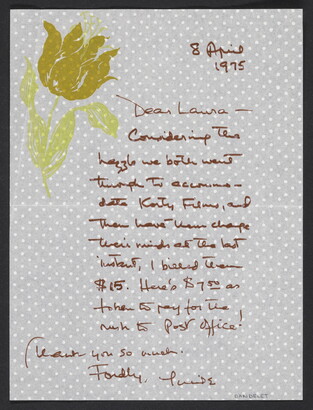 8 April
1975
Dear Laura —
Considering the
hazzle we both went
through to accommo-
date Korty Films, and
then have them change
their minds at the last
instant, I billed them
$15. Here's $7.50 as
token to pay for the
rush to Post Office!
Thank you so much.
Fondly,